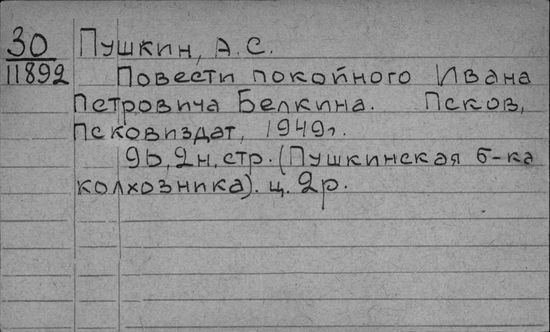 30
11892
Пушкин, А.С.
Повести покойного Ивана
Петровича Белкина. Псков,
Псковиздат, 1949г.
96, 2н. стр. (Пушкинская б-ка
колхозника). ц. 2р.